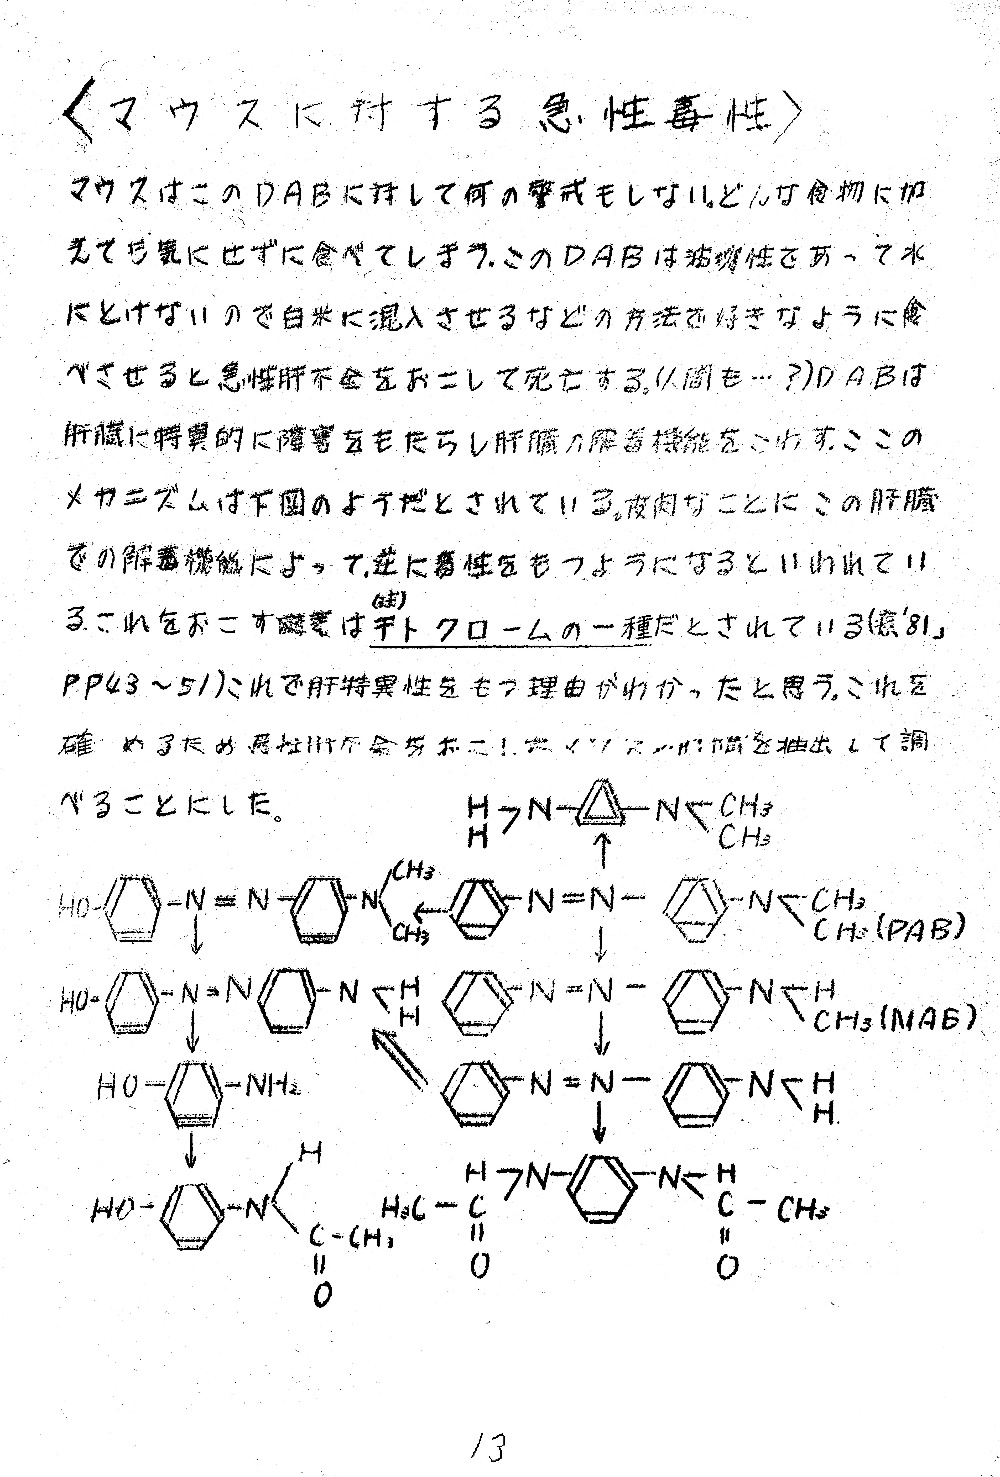 〈マウスに対する急性毒性〉
マウスはこのDABに対して何の警戒もしない。どんな食物に加
えても気にせずに食べてしまう。このDABは油性であって水
にとけないので白米に混入させるなどの方法で好きなように食
べさせると急性肝不全をおこして死亡する。(人間も…?)DABは
肝臓に特異的に障害をもたらし肝臓の解毒機能をこわす。ここの
メカニズムは下図のようだとされている。皮肉なことにこの肝臓
での解毒機能によって、逆に毒性をもつようになるといわれてい
る。これをおこす酵素は
(注)
チトクロームの一種だとされている(癌'81」
PP43〜51)これで肝特異性をもつ理由がわかったと思う。これを
確かめるため急性肝不全をおこしたマウスの肝臓を抽出して調
べることにした。
H H N N CH3 CH3
HO N=N N CH3 CH3 N=N N CH3 CH3(PAB)
HO N=N N H H N=N N H CH3(MAB)
HO NH2 N=N N H H
HO N H C-CH3 O H3C-C O H N N H C-CH3 O
13